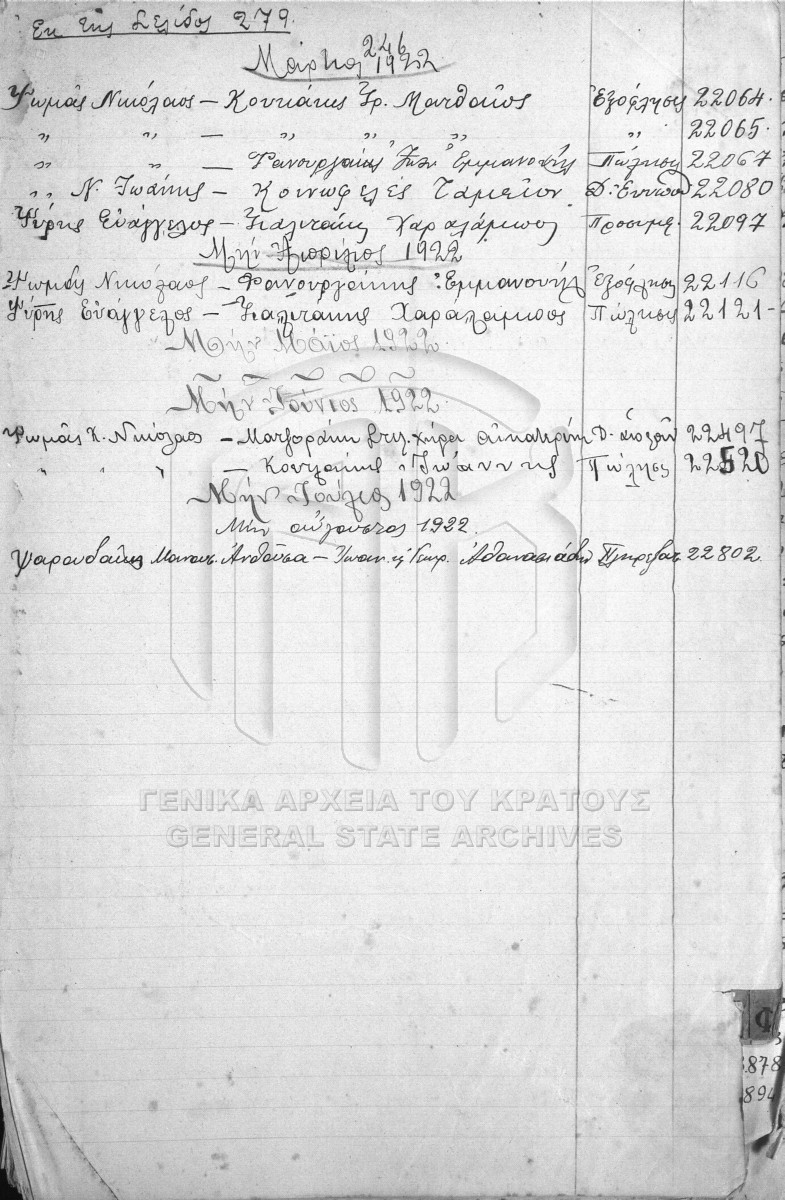 Εκ της Σελίδος 279.
246
Μάρτιος 1922
Ψωμάς Νικόλαος – Κουκάκης Γρ. Ματθαίος Ἐξόφλησις 22064.
„ „ – „ „ „ „ 22065.
„ „ – Φανουργάκης Εμμανουήλ Πώλησις 22067
„ Ν. Ιωάννης – Κοινωφελές Ταμείον Δ. 22080
Ψύρης Εὐάγγελος – Γιαλιτάκης Χαραλάμπους 22097
Μήν Απρίλιος 1922
Ψωμάς Νικόλαος – Φανουργάκης Εμμανουήλ Ἐξόφλησις 22116
Ψύρης Εὐάγγελος – Γιαλιτάκης Χαραλάμπους Πώλησις 22121–
Μήν Μάϊος 1922
Μήν Ἰούνιος 1922.
Ψωμάς Νικόλαος – χήρα Αἰκατερίνη Δ. 22497
„ „ „ – Ἰωάννης Πώλησις 22520
Μήν Ἰούλιος 1922
Μήν αὔγουστος 1922.
Ψαρουδάκη Ανθούσα – Ἰωαν. ἤ Γεωρ. Ἀθανασιάδη 22802.
ΓΕΝΙΚΑ ΑΡΧΕΙΑ ΤΟΥ ΚΡΑΤΟΥΣ
GENERAL STATE ARCHIVES
878
894